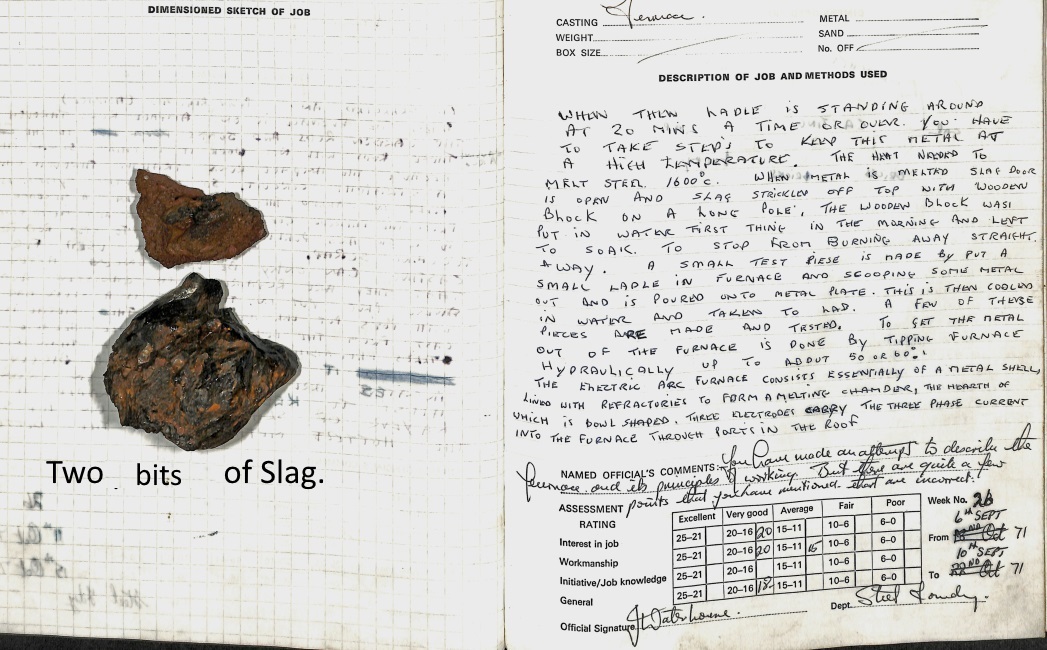 DIMENSIONED SKETCH OF JOB
Two bits of Slag.
CASTING Furnace.
WEIGHT
BOX SIZE
METAL
SAND
No. OFF
DESCRIPTION OF JOB AND METHODS USED
WHEN THEN LADLE IS STANDING AROUND
AT 20 MINS A TIME OR OVER. YOU HAVE
TO TAKE STEP'S TO KEEP THIS METAL AT
A HIGH TEMPERATURE. THE HEAT NEEDED TO
MELT STEEL. 1600°C. WHEN METAL IS MELTED SLAG DOOR
IS OPEN AND SLAG STRICKLED OFF TOP WITH 'WOODEN
BLOCK ON A LONG POLE'. THE WOODEN BLOCK WAS
PUT IN WATER FIRST THING IN THE MORNING AND LEFT
TO SOAK. TO STOP FROM BURNING AWAY STRAIGHT
AWAY. A SMALL TEST PIESE IS MADE BY PUT A
SMALL LADLE IN FURNACE AND SCOOPING SOME METAL
OUT AND IS POURED ONTO METAL PLATE. THIS IS THEN COOLED
IN WATER AND TAKEN TO LAB. A FEW OF THESE
PIECES ARE MADE AND TESTED. TO GET THE METAL
OUT OF THE FURNACE IS DONE BY TIPPING FURNACE
HYDRAULICALLY UP TO ABOUT 50 OR 60°.
THE ELECTRIC ARC FURNACE CONSISTS ESSENTIALLY OF A METAL SHELL,
LINED WITH REFRACTORIES TO FORM A MELTING CHAMBER, THE HEARTH OF
WHICH IS BOWL SHAPED. THREE ELECTRODES CARRY THE THREE PHASE CURRENT
INTO THE FURNACE THROUGH PORTS IN THE ROOF
NAMED OFFICIAL'S COMMENTS: You have made an attempt to describe the
furnace and its principles of working. But there are quite a few
points that you have mentioned that are incorrect.
ASSESSMENT
RATING
Excellent Very good Average Fair Poor
Interest in job 25–21 20–16 20 15–11 10–6 6–0
Workmanship 25–21 20–16 20 15–11 15 10–6 6–0
Initiative/Job knowledge 25–21 20–16 15–11 10–6 6–0
General 25–21 20–16 18 15–11 10–6 6–0
Week No. 26
6TH SEPT
From 22ND Oct 71
10TH SEPT
To 22ND Oct 71
Official Signature J Waterhouse.
Dept. Steel Foundry.